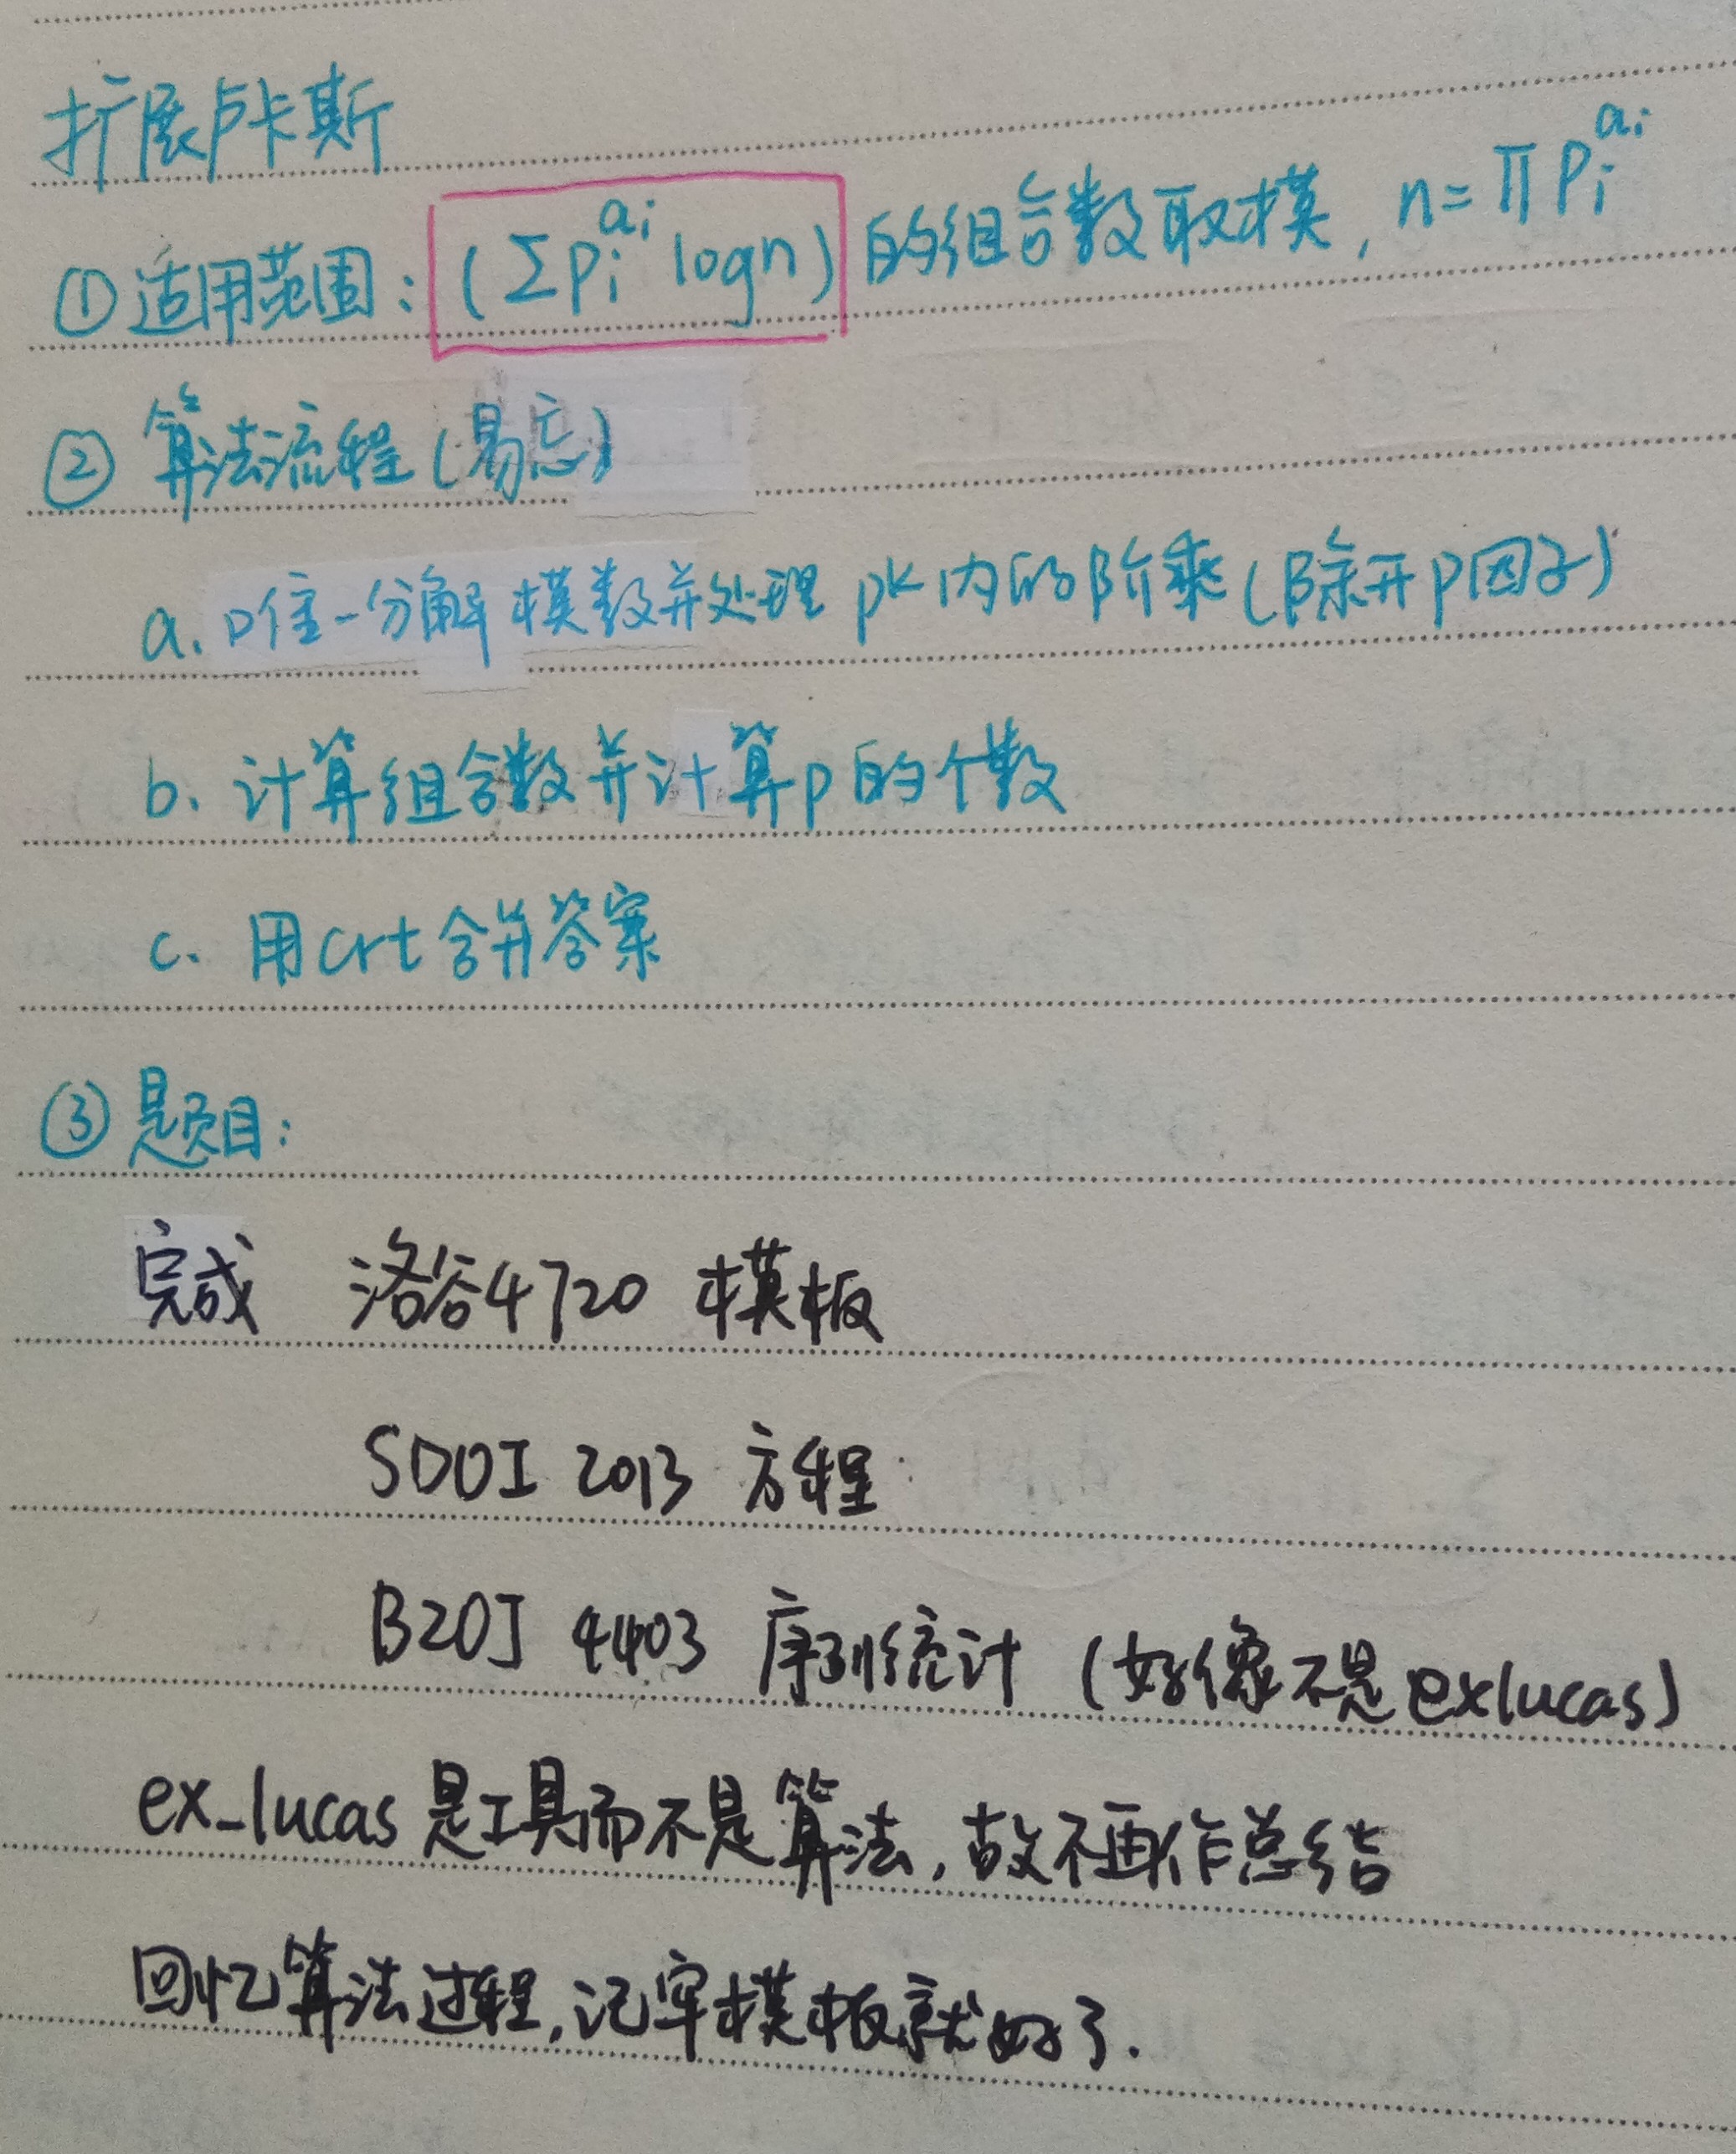 扩展卢卡斯
①适用范围:(∑pᵢ^aᵢ logn)的组合数取模,n=∏Pᵢ^aᵢ
②算法流程(易忘)
a.唯一分解模数并处理pk内的阶乘(除开p因子)
b.计算组合数并计算p的个数
c.用crt合并答案
③题目:
完成 洛谷4720 模板
SDOI 2013 方程
BZOJ 4403 序列统计 (好像不是exlucas)
ex_lucas是工具而不是算法,故不再作总结
回忆算法过程,记牢模板就好了.